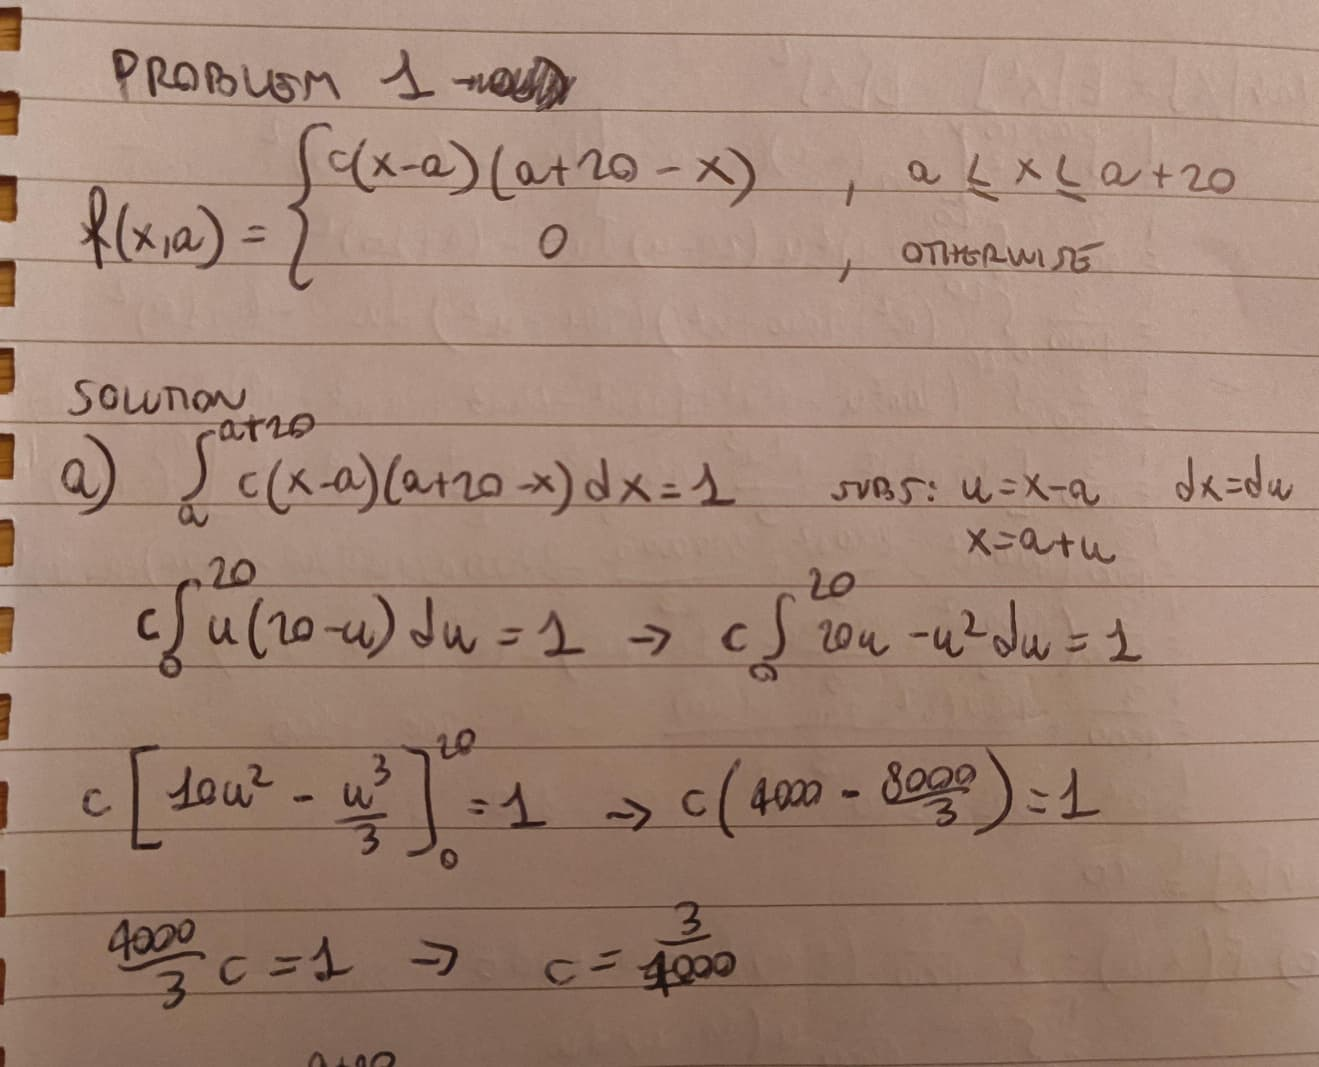 PROBLEM 1
f(x,a) = { c(x-a)(a+20-x) , a ≤ x ≤ a+20
0 , OTHERWISE
SOLUTION
a) ∫_a^{a+20} c(x-a)(a+20-x)dx = 1 SUBS: u=x-a dx=du
x=a+u
c∫_0^{20} u(20-u)du = 1 → c∫_0^{20} 20u - u² du = 1
c[10u² - u³/3]_0^{20} = 1 → c(4000 - 8000/3) = 1
4000/3 c = 1 → c = 3/4000
a+20